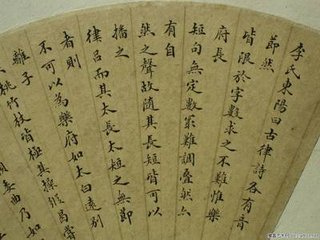 李氏東陽曰古律詩各有音
節然
皆限於字數求之不難惟樂
府長
短句無定數最難調疊然亦
有自
然之聲故隨其長短皆可以
播之
律呂而其太長太短之無節
者則
不可以為樂府如太白遠別
離子
桃竹杖皆極其操縱曷嘗
曲乃如